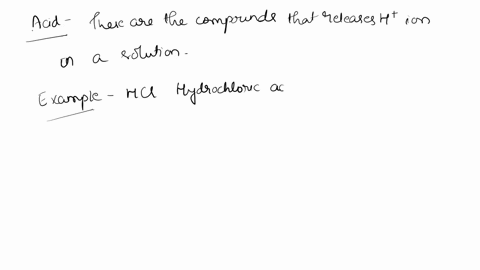 Acid - These are the compounds that releases H⁺ ion
in a solution.
Example - HCl Hydrochloric ac